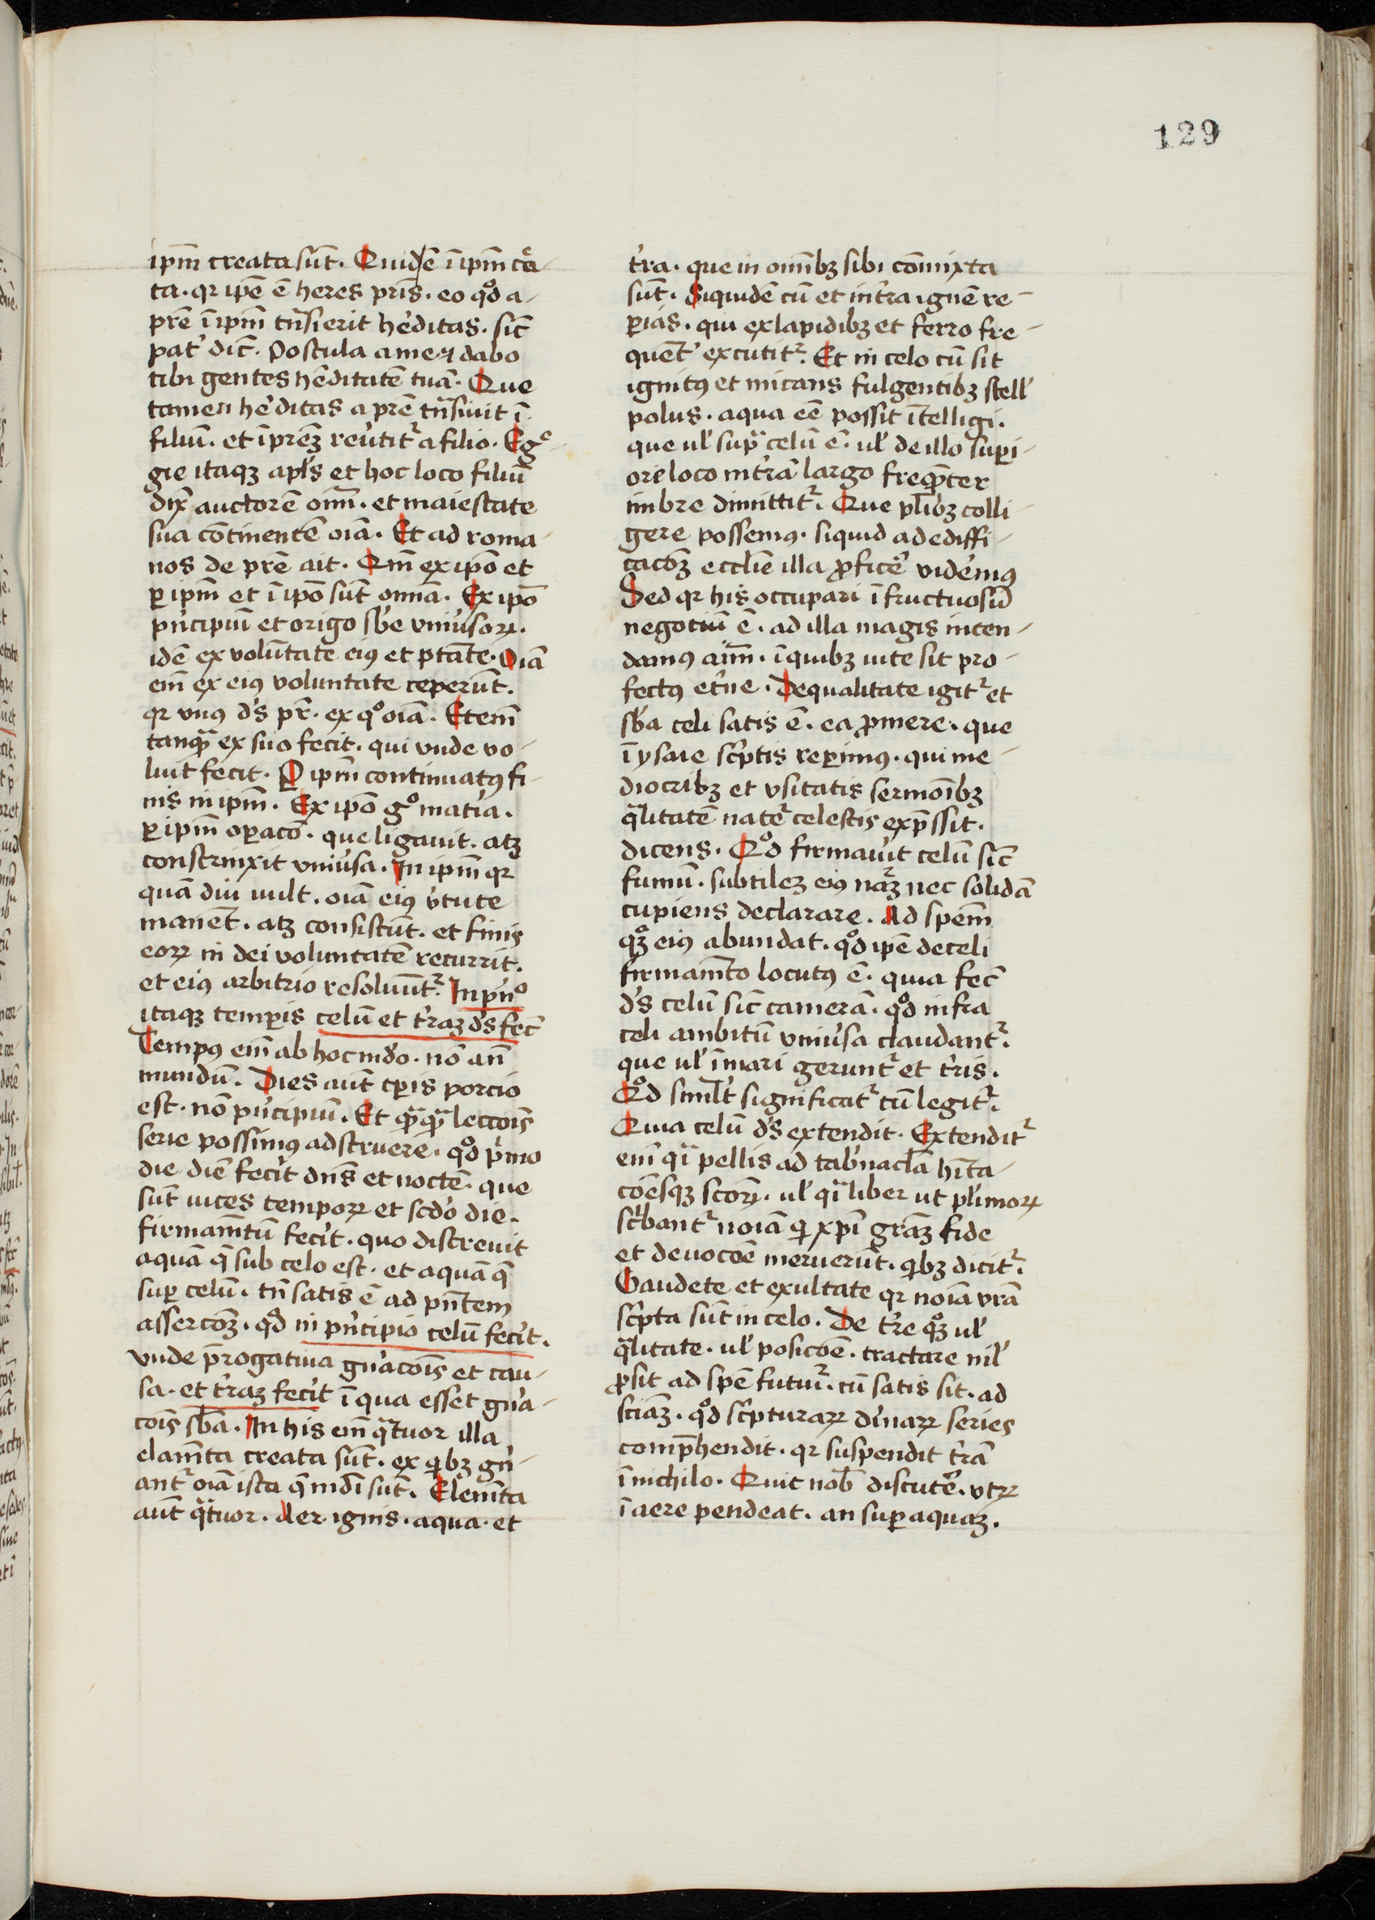 129
ip̄m creata sūt. Quid ē ī ip̄m c͛a
ta. qr ip̄e ē heres pr̄is. eo qͦd a-
pr̄e ī ip̄m tn̄sierit hēditas. sic̄
pat᷑ dic̄. Postula a me ⁊ dabo
tibi gentes hēditatē tuā. Que
tamen hēditas a pr̄e tn̄siuit ī
filiū. et ī prēꝫ reūtit᷑ a filio. Eg͛-
gie itaqꝫ apl̄s et hoc loco filiū
dix̄ auctorē oīm. et maiestate
sua cōtinentē oīa. Et ad roma-
nos de pr̄e ait. Qm̄ ex ip̄o et
ꝑ ip̄m et ī ip̄o sūt omīa. Ex ip̄o
pͥncipiū et origo sb̄e vniūsoꝝ.
idē ex volūtate eiꝰ et ptāte. Oīa
em̄ ex eiꝰ voluntate ceperūt.
qr vnꝰ dˢ pr̄. ex qͦ oīa. Etem̄
tanqᷓ ex suo fecit. qui vnde vo-
luit fecit. P ip̄m continuatꝰ fi-
nis in ip̄m. Ex ip̄o gͦ matīa.
ꝑ ip̄m oꝑacō. que ligauit. atꝫ
constrinxit vniūsa. In ip̄m qr
quādiu vult. oīa eiꝰ v̄tute
manēt. atꝫ consistūt. et finis
eoꝝ in dei voluntatē recurrit.
et eiꝰ arbitrio resoluūt᷑. In pͥnͦ
itaqꝫ temꝑis celū et tr̄aꝫ dˢ fec̄
Tempꝰ em̄ ab hoc mdo. nō an̄
mundū. Dies aūt tꝑis porcio
est. nō pͥncipiū. Et qᷓqᷓ leccōis
serie possimꝰ adstruere. qͦd pͥmo
die diē fecit dn̄s et noctē. que
sūt uices tempoꝝ et scd̄o die.
firmam̄tū fecit. quo discreuit
aquā q̄ sub celo est. et aquā q̄
suꝑ celū. tn̄ satis ē ad pn̄tem
assercōꝫ. qͦd in pͥncipio celū fecit.
vnde p̄rogatiua gn̄acōis et cau-
sa. et tr̄aꝫ fecit ī qua esset gn̄a-
cōis sb̄a. In his em̄ qᷓtuor illa
elam̄ta creata sūt. ex qͥbꝫ gn̄-
ant᷑ oīa ista q̄ mdī sūt. Elem̄ta
aūt qᷓtuor. Aer. ignis. aqua. et
tr̄a. que in omībꝫ sibi cōmixta
sūt. Siquidē cū et in tr̄a ignē re-
ꝑias. qui ex lapidibꝫ et ferro fre-
quent᷑ excutit᷑. Et in celo cū sit
ignitꝰ et micans fulgentibꝫ stell̄
polus. aqua eē possit ītelligi.
que ul̄ supᷓ celū ē. ul̄ de illo suꝑi-
ore loco in tr̄a largo freq̄nter
imbre dimittit᷑. Que pl̄ibꝫ colli-
gere possemꝰ. siquid ad ediffi-
cacōꝫ eccl̄ie illa ꝓficͤ videmꝰ
Sed qr his occupari īfructuosū
negotiū ē. ad illa magis inten-
damꝰ aīm. ī quibꝫ uite sit pro-
fectꝰ et̄ne. De qualitate igit᷑ et
sb̄a celi satis ē. ea ꝓmere. que
ī ysaie sc̄ptis reꝑimꝰ. qui me-
diocribꝫ et vsitatis sermōibꝫ
qᷓlitatē nate᷑ celestis exp̄ssit.
dicens. Qͦd firmauit celū sic̄
fumū. subtileꝫ eiꝰ nāꝫ nec solidā
cupiens declarare. Ad spem̄
qͦꝫ eiꝰ abundat. qͦd ip̄e de celi
firmam̄to locutꝰ ē. quia fec̄
dˢ celū sic̄ camerā. qͦd infra
celi ambitū vniūsa claudant᷑.
que ul̄ ī mari gerunt᷑ et tr̄is.
Qͦd simil̄r significat᷑ cū legit᷑.
Quia celū dˢ extendit. Extendit᷑
em̄ qͣ pellis ad tab̄nacl̄a hīta-
cōesqꝫ sc̄oꝝ. ul̄ qͣ liber ut pl̄imoꝝ
sc̄bant᷑ noīa qͥ xp̄i gr̄aꝫ fide
et deuocōe meruerūt. qͥbꝫ dicit᷑.
Gaudete et exultate qr noīa vr̄a
sc̄pta sūt in celo. De tr̄e qͦꝫ ul̄
qᷓlitate. ul̄ posicōe. tractare nil̄
ꝓsit ad spē futuꝝ. cū satis sit. ad
sciāꝫ. qͦd sc̄pturaꝝ diūaꝝ series
comp̄hendit. qr suspendit tr̄a
ī nichilo. Quit nob̄ discutē. vtꝝ
ī aere pendeat. an suꝑ aquaꝫ.